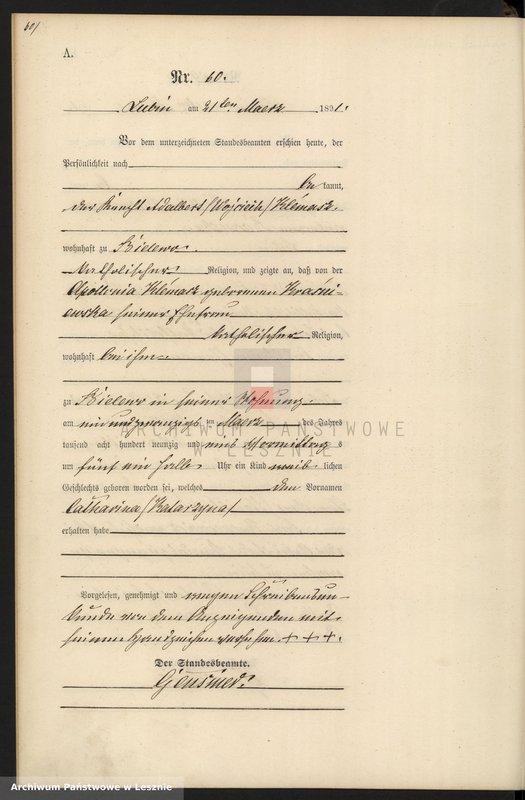 60/
A.
Nr. 60.
Lubin am 21ten Maerz 1891.
Vor dem unterzeichneten Standesbeamten erschien heute, der
Persönlichkeit nach
be kannt,
der Knecht Adalbert /Wojciech/ Klémasz.
wohnhaft zu Bielewo.
katholischer Religion, und zeigte an, daß von der
Apollonia Klémasz geborenen Kraśni-
ewska seiner Ehefrau
katholischer Religion,
wohnhaft bei ihm
zu Bielewo in seiner Wohnung
am ein und zwanzigsten Maerz des Jahres
tausend acht hundert neunzig und eins Vormittag s
um fünf ein halb Uhr ein Kind weib lichen
Geschlechts geboren worden sei, welches den Vornamen
Catharina /Katarzyna/
erhalten habe
Vorgelesen, genehmigt und wegen Schreibensun-
kunde von dem Anzeigenden mit
seinem Handzeichen versehen + + +.
Der Standesbeamte.
ARCHIWUM PAŃSTWOWE
W LESZNIE
Archiwum Państwowe w Lesznie